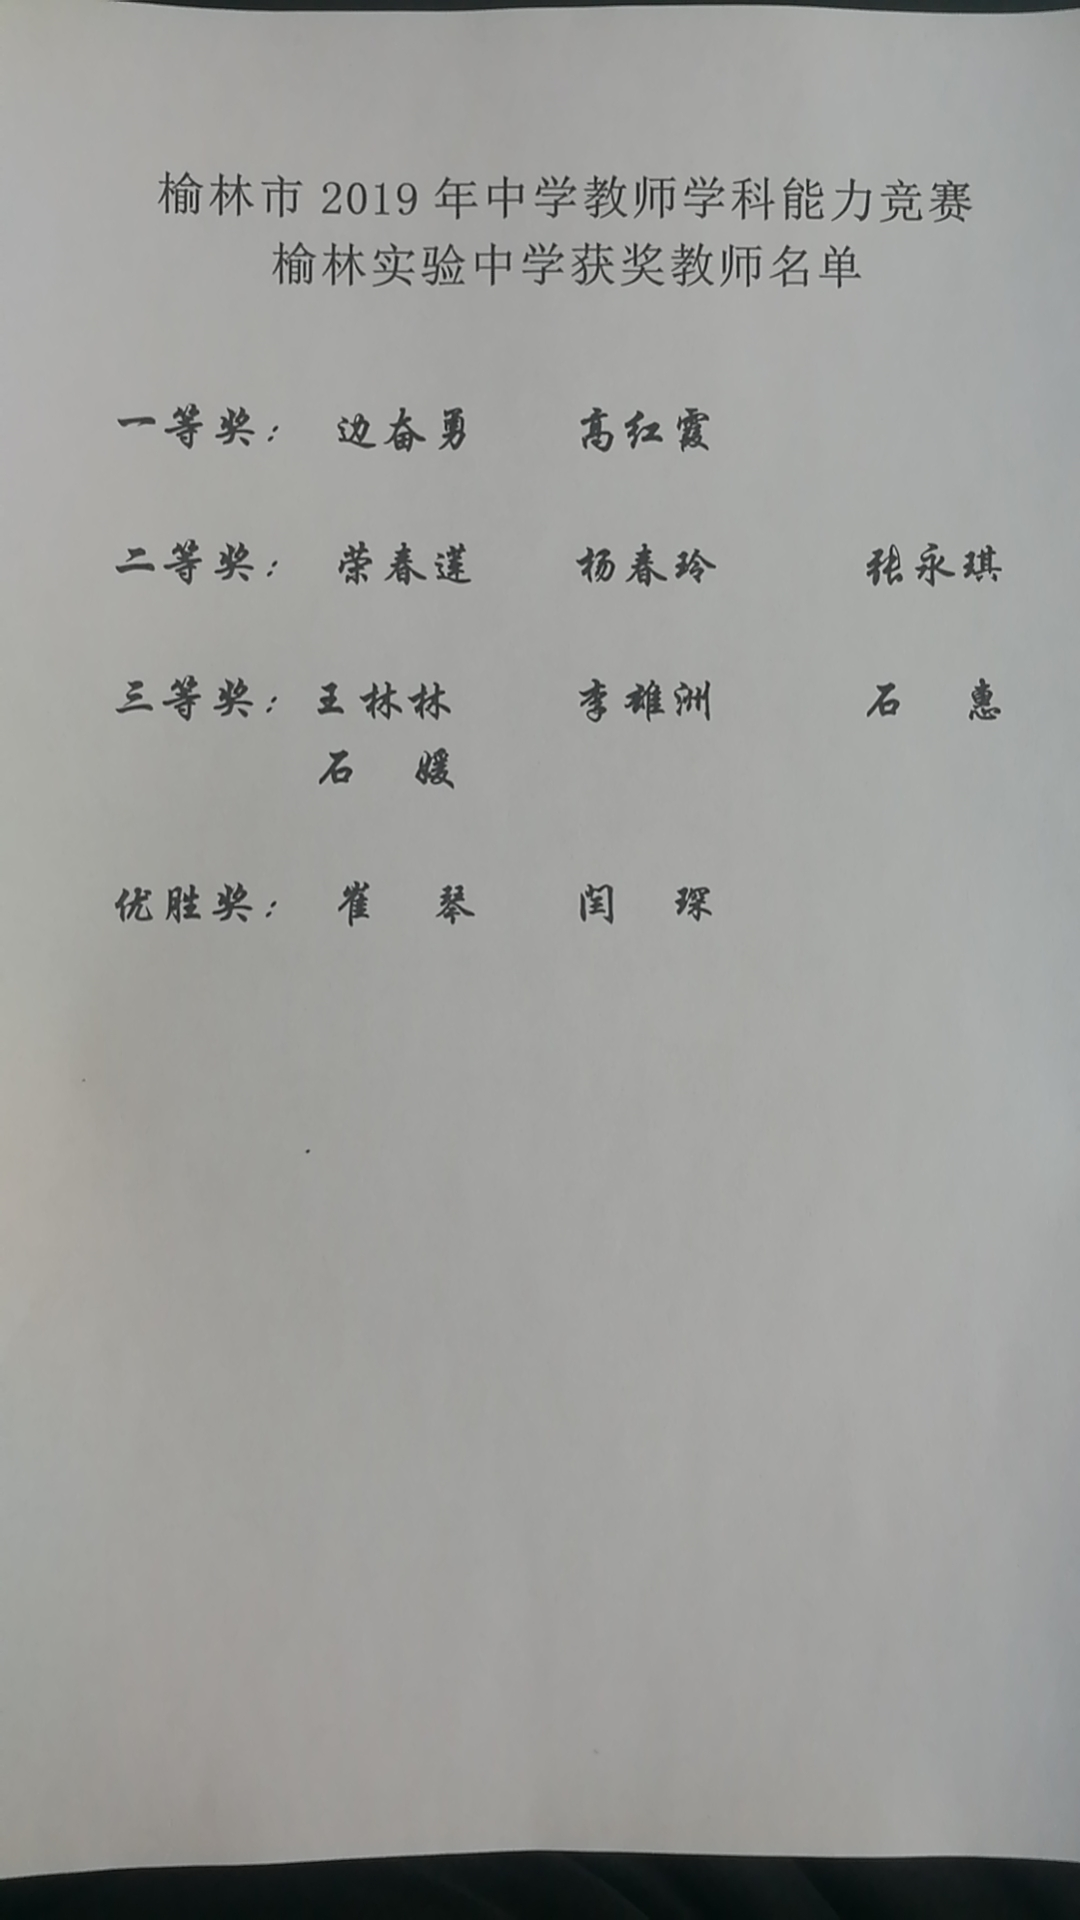 榆林市 2019 年中学教师学科能力竞赛
榆林实验中学获奖教师名单
一等奖： 边奋勇 高红霞
二等奖： 荣春莲 杨春玲 张永琪
三等奖：王林林 李雄洲 石 惠
石 媛
优胜奖： 崔 琴 闫 琛